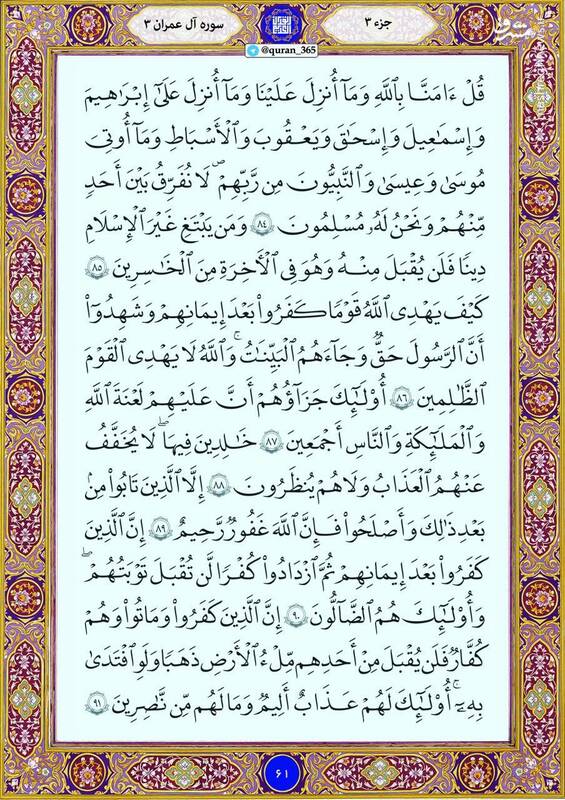 جزء ۳
@quran_365
سوره آل عمران ۳
مشرق
قُلْ ءَامَنَّا بِٱللَّهِ وَمَآ أُنزِلَ عَلَيْنَا وَمَآ أُنزِلَ عَلَىٰٓ إِبْرَٰهِيمَ
وَإِسْمَٰعِيلَ وَإِسْحَٰقَ وَيَعْقُوبَ وَٱلْأَسْبَاطِ وَمَآ أُوتِىَ
مُوسَىٰ وَعِيسَىٰ وَٱلنَّبِيُّونَ مِن رَّبِّهِمْ لَا نُفَرِّقُ بَيْنَ أَحَدٍ
مِّنْهُمْ وَنَحْنُ لَهُۥ مُسْلِمُونَ ۸۴ وَمَن يَبْتَغِ غَيْرَ ٱلْإِسْلَٰمِ
دِينًا فَلَن يُقْبَلَ مِنْهُ وَهُوَ فِى ٱلْأَخِرَةِ مِنَ ٱلْخَٰسِرِينَ ۸۵
كَيْفَ يَهْدِى ٱللَّهُ قَوْمًا كَفَرُوا۟ بَعْدَ إِيمَٰنِهِمْ وَشَهِدُوٓا۟
أَنَّ ٱلرَّسُولَ حَقٌّ وَجَآءَهُمُ ٱلْبَيِّنَٰتُ ۚ وَٱللَّهُ لَا يَهْدِى ٱلْقَوْمَ
ٱلظَّٰلِمِينَ ۸۶ أُو۟لَٰٓئِكَ جَزَآؤُهُمْ أَنَّ عَلَيْهِمْ لَعْنَةَ ٱللَّهِ
وَٱلْمَلَٰٓئِكَةِ وَٱلنَّاسِ أَجْمَعِينَ ۸۷ خَٰلِدِينَ فِيهَا ۖ لَا يُخَفَّفُ
عَنْهُمُ ٱلْعَذَابُ وَلَا هُمْ يُنظَرُونَ ۸۸ إِلَّا ٱلَّذِينَ تَابُوا۟ مِنۢ
بَعْدِ ذَٰلِكَ وَأَصْلَحُوا۟ فَإِنَّ ٱللَّهَ غَفُورٌ رَّحِيمٌ ۸۹ إِنَّ ٱلَّذِينَ
كَفَرُوا۟ بَعْدَ إِيمَٰنِهِمْ ثُمَّ ٱزْدَادُوا۟ كُفْرًا لَّن تُقْبَلَ تَوْبَتُهُمْ ۖ
وَأُو۟لَٰٓئِكَ هُمُ ٱلضَّآلُّونَ ۹۰ إِنَّ ٱلَّذِينَ كَفَرُوا۟ وَمَاتُوا۟ وَهُمْ
كُفَّارٌ فَلَن يُقْبَلَ مِنْ أَحَدِهِم مِّلْءُ ٱلْأَرْضِ ذَهَبًا وَلَوِ ٱفْتَدَىٰ
بِهِۦٓ ۗ أُو۟لَٰٓئِكَ لَهُمْ عَذَابٌ أَلِيمٌ وَمَا لَهُم مِّن نَّٰصِرِينَ ۹۱
۶۱